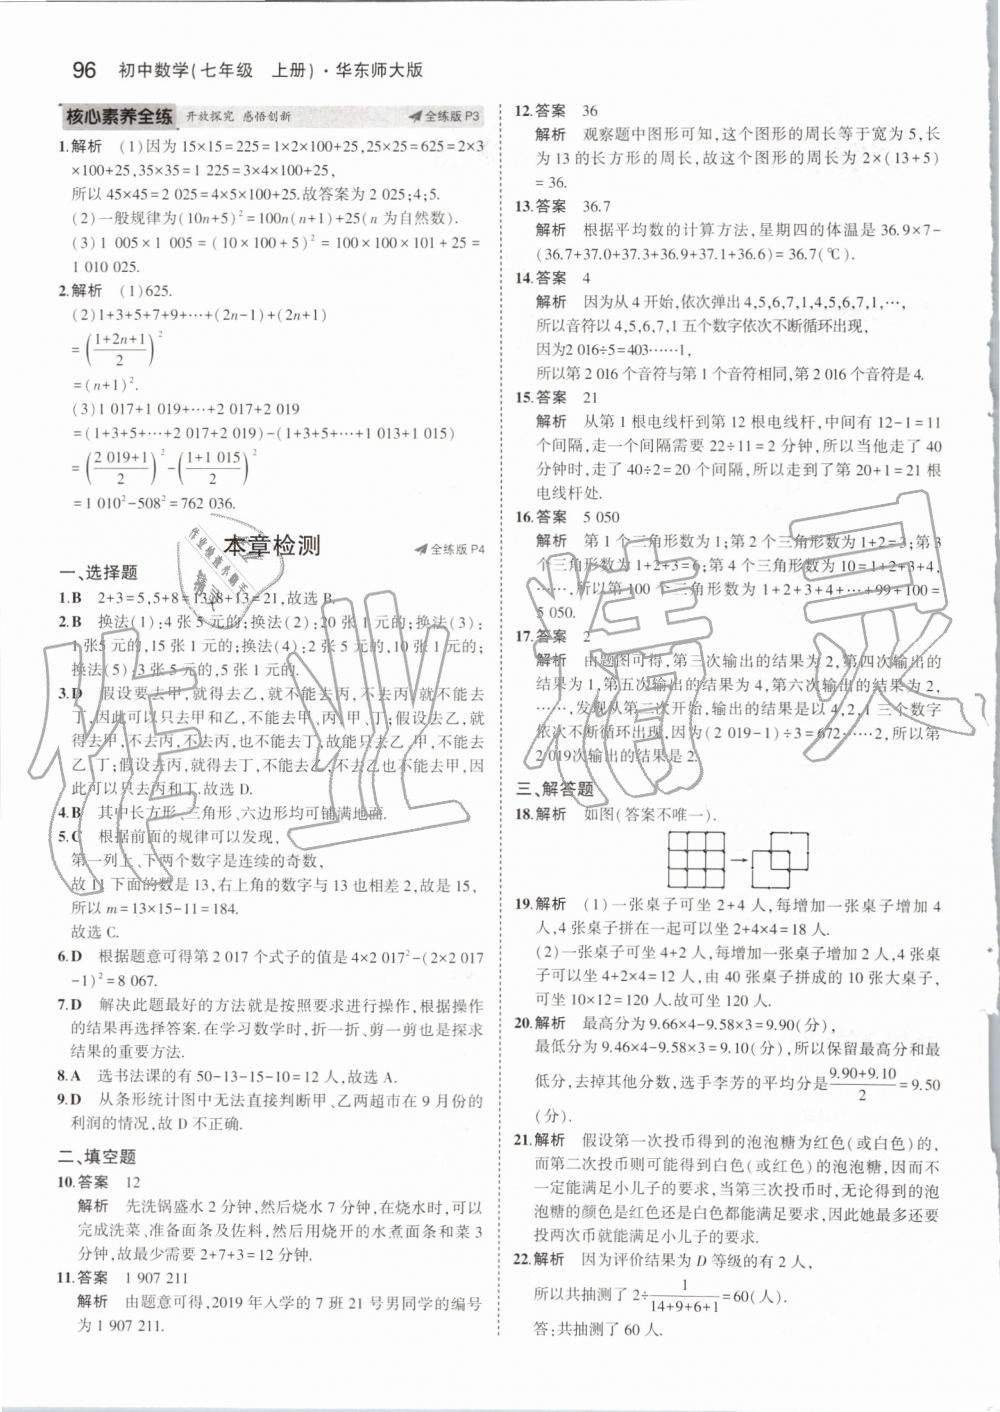 96 初中数学(七年级 上册)·华东师大版
核心素养全练 开放探究 感悟创新 全练版 P3
1.解析 (1)因为 15×15=225=1×2×100+25,25×25=625=2×3
×100+25,35×35=1 225=3×4×100+25,
所以 45×45=2 025=4×5×100+25.故答案为 2 025;4;5.
(2)一般规律为(10n+5)²=100n(n+1)+25(n 为自然数).
(3)1 005×1 005=(10×100+5)²=100×100×101+25=
1 010 025.
2.解析 (1)625.
(2)1+3+5+7+9+…+(2n-1)+(2n+1)
=((1+2n+1)/2)²
=(n+1)².
(3)1 017+1 019+…+2 017+2 019
=(1+3+5+…+2 017+2 019)-(1+3+5+…+1 013+1 015)
=((2 019+1)/2)²-((1+1 015)/2)²
=1 010²-508²=762 036.
本章检测 全练版 P4
一、选择题
1.B 2+3=5,5+8=13,8+13=21,故选 B.
2.B 换法(1):4 张 5 元的;换法(2):20 张 1 元的;换法(3):
1 张5 元的,15 张 1 元的;换法(4):2 张 5 元的,10 张 1 元的;
换法(5):3 张 5 元的,5 张 1 元的.
3.D 假设要去甲,就得去乙,就不能去丙,不去丙,就不能去
丁,因此可以只去甲和乙,不能去甲、丙、甲、丁;假设去乙,就
得去甲,不去丙,不去丙,也不能去丁,故能只去乙、甲,不能去
乙、丁;假设去丙,就不能去乙,不去乙也不能去甲,因
此可以只去丙和丁.故选 D.
4.B 其中长方形、三角形、六边形均可铺满地面.
5.C 根据前面的规律可以发现,
第一列上、下两个数字是连续的奇数,
故 11 下面的数是 13,右上角的数字与 13 也相差 2,故是 15,
所以 m=13×15-11=184.
故选 C.
6.D 根据题意可得第 2 017 个式子的值是 4×2 017²-(2×2 017
-1)²=8 067.
7.D 解决此题最好的方法就是按照要求进行操作,根据操作
的结果再选择答案.在学习数学时,折一折、剪一剪也是探求
结果的重要方法.
8.A 选书法课的有 50-13-15-10=12 人,故选 A.
9.D 从条形统计图中无法直接判断甲、乙两超市在 9 月份的
利润的情况,故 D 不正确.
二、填空题
10.答案 12
解析 先洗锅盛水 2 分钟,然后烧水 7 分钟,在烧水时,可以
完成洗菜、准备面条及佐料,然后用烧开的水煮面条和菜 3
分钟,故最少需要 2+7+3=12 分钟.
11.答案 1 907 211
解析 由题意可得,2019 年入学的 7 班 21 号男同学的编号
为 1 907 211.
12.答案 36
解析 观察题中图形可知,这个图形的周长等于宽为 5,长
为 13 的长方形的周长,故这个图形的周长为 2×(13+5)
=36.
13.答案 36.7
解析 根据平均数的计算方法,星期四的体温是 36.9×7-
(36.7+37.0+37.3+36.9+37.1+36.6)=36.7(℃).
14.答案 4
解析 因为从 4 开始,依次弹出 4,5,6,7,1,4,5,6,7,1,…,
所以音符以 4,5,6,7,1 五个数字依次不断循环出现,
因为2 016÷5=403……1,
所以第 2 016 个音符与第 1 个音符相同,第 2 016 个音符是 4.
15.答案 21
解析 从第 1 根电线杆到第 12 根电线杆,中间有 12-1=11
个间隔,走一个间隔需要 22÷11=2 分钟,所以当他走了 40
分钟时,走了 40÷2=20 个间隔,所以走到了第 20+1=21 根
电线杆处.
16.答案 5 050
解析 第 1 个三角形数为 1;第 2 个三角形数为 1+2=3;第 3
个三角形数为 1+2+3=6;第 4 个三角形数为 10=1+2+3+4,
……,所以第 100 个三角形数为 1+2+3+4+…+99+100=
5 050.
17.答案 2
解析 由题图可得,第三次输出的结果为 2,第四次输出的
结果为 1,第五次输出的结果为 4,第六次输出的结果为 2,
……,发现从第二次开始,输出的结果是以 4,2,1 三个数字
依次不断循环出现,因为(2 019-1)÷3=672……2,所以第
2 019次输出的结果是 2.
三、解答题
18.解析 如图(答案不唯一).
19.解析 (1)一张桌子可坐 2+4 人,每增加一张桌子增加 4
人,4 张桌子拼在一起可以坐 2+4×4=18 人.
(2)一张桌子可坐 4+2 人,每增加一张桌子增加 2 人,4 张桌
子可以坐 4+2×4=12 人,由 40 张桌子拼成的 10 张大桌子,
可坐 10×12=120 人.故可坐 120 人.
20.解析 最高分为 9.66×4-9.58×3=9.90(分),
最低分为 9.46×4-9.58×3=9.10(分),所以保留最高分和最
低分,去掉其他分数,选手李芳的平均分是(9.90+9.10)/2=9.50
(分).
21.解析 假设第一次投币得到的泡泡糖为红色(或白色)的,
而第二次投币则可能得到白色(或红色)的泡泡糖,因而不
一定能满足小儿子的要求,当第三次投币时,无论得到的泡
泡糖的颜色是红色还是白色都能满足要求,因此她最多还要
投两次币就能满足小儿子的要求.
22.解析 因为评价结果为 D 等级的有 2 人,
所以共抽测了 2÷1/(14+9+6+1)=60(人).
答:共抽测了 60 人.
作业精灵